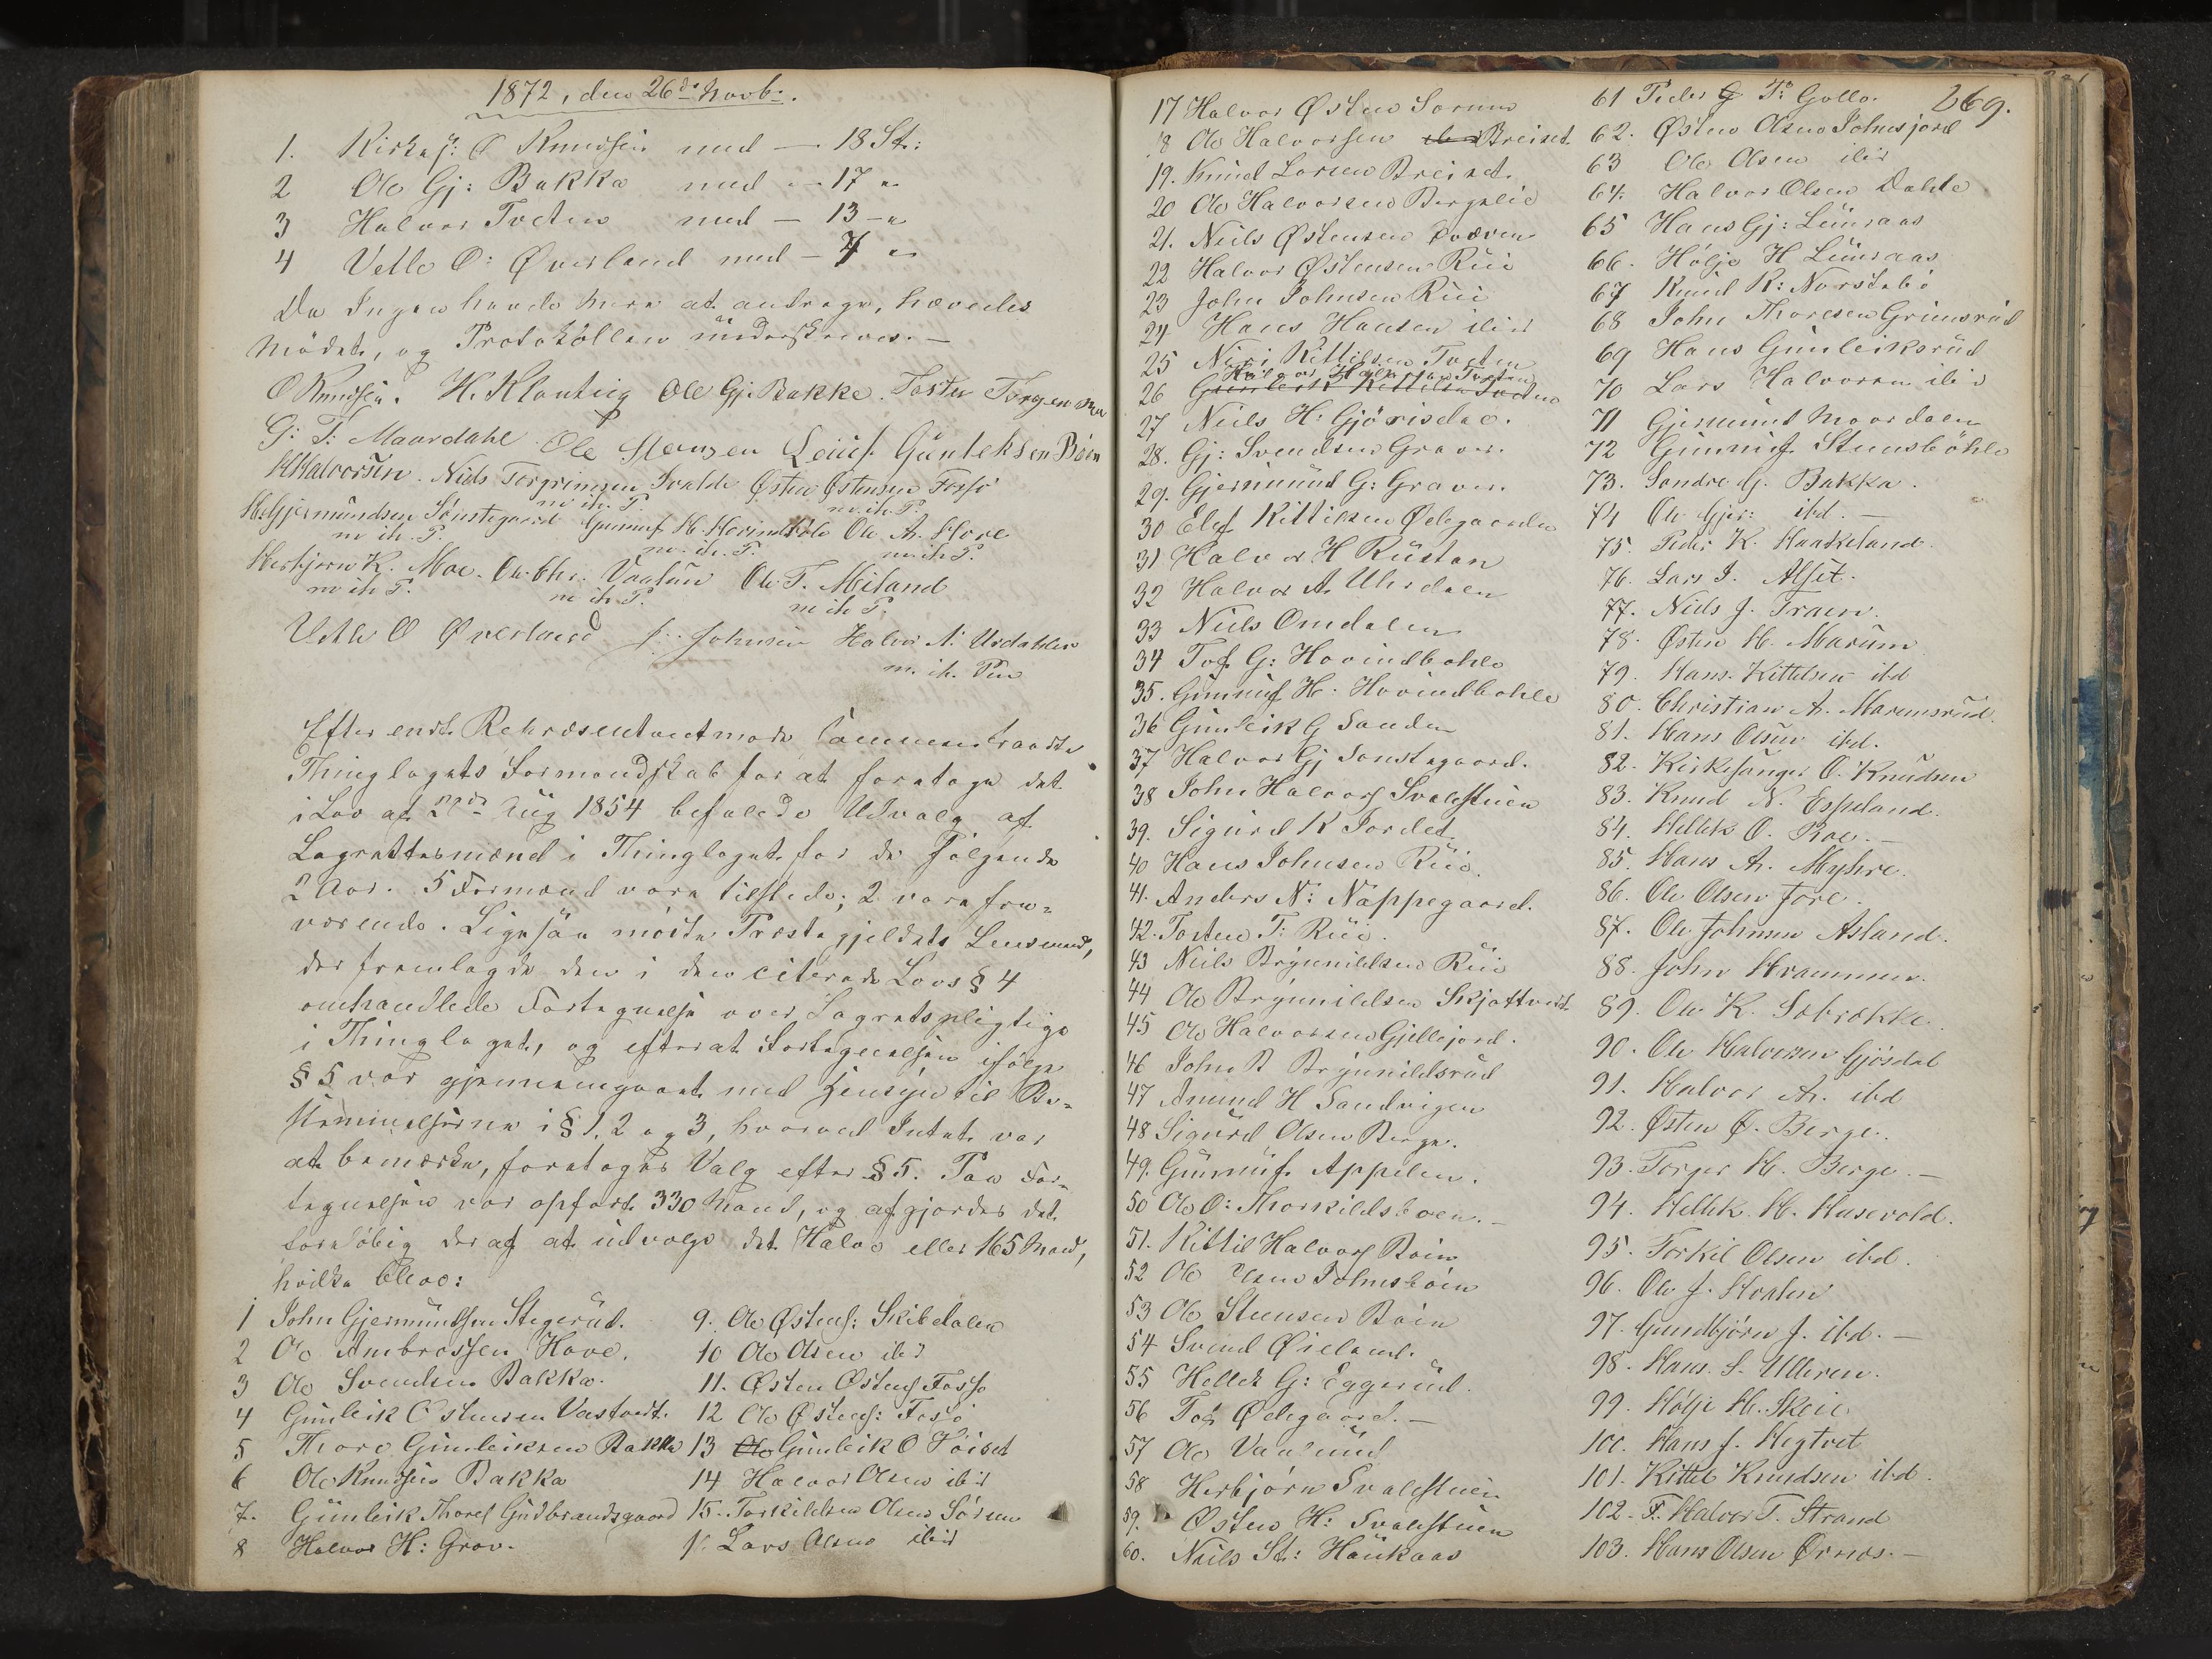 1872, den 26de Novb:.
1. Kirkes: O Knudsen med — 18 St:
2 Ole Gj: Bakka med — 17 "
3 Halvor Tveten med — 13 — "
4 Vetle O: Øverland med — 7 "
Da Ingen havde mere at andrage, hævedes
Mødet, og Protokollen underskreves. —
O Knudsen. H. Klonteig Ole Gj. Bakke. Tosten Torgersen
G: T: Maardahl Ole Stensen Leiuf Gunleksen Böen
HHalvorsen. Niels Torgrimsen Ivalde Østen Østensen Fossö
m. ih. P. m. ih. P.
H. Gjermundsen Sønstegaard Gunnuf H. Hovindbøle Ole A. Hove
m ih. P. m. ih. P. m. ih P.
Herbjørn K. Moe. Ole Chr. Vaalun Ole T. Miland
m ih P. m ih. P. m ih P.
Vetle O Øverland J: Johnsen Halvor N: Urdahlen
m. ih. Pen
Efter endt Repræsentantmøde sammentraadte
Thinglagets Formandskab for at foretage det
i Lov af 22de Aug 1854 befalede Udvalg af
Lagrettesmænd i Thinglaget for de følgende
2 Aar. 5 Formænd vare tilstede; 2 vare fra-
værende. Ligesaa mødte Præstegjeldets Lensmand,
der fremlagde den i den citerede Lovs § 4
omhandlede Fortegnelse over Lagretspligtige
i Thinglaget, og efterat Fortegnelsen ifølge
§ 5 var gjennemgaaet med Hensyn til Be-
stemmelserne i § 1, 2 og 3, hvorved Intet var
at bemærke, foretoges Valg efter § 5. Paa For-
tegnelsen var opført 330 Mand, og afgjordes det
foreløbig deraf at udvælge det Halve eller 165 Mand,
hvilke bleve:
1 John Gjermundsen Stegerud.
2 Ole Ambrossen Hove.
3 Ole Svendsen Bakka.
4 Gunleik Østensen Vastveit.
5 Thore Gunleiksen Bakka
6 Ole Knudsen Bakka
7. Gunleik Thores Gudbrandsgaard
8 Halvor H: Grov.
9. Ole Østens: Skibdalen
10 Ole Olsen ibid
11. Østen Østens Fossö
12 Ole Østens: Fosö
13 Ole Gunleik O Höiset
14 Halvor Olsen ibid
15. Torkildsen Olsen Sörum
Lars Olsen ibid
269.
17 Halvor Østen Sorum
18 Ole Halvorsen ibid Breiset
19. Knud Larsen Breiset.
20 Ole Halvorsen Bergelie
21. Niels Østensen Kværn
22 Halvor Østensen Rui
23 John Johnsen Rui
24 Hans Hansen ibid
25 Niri Kittilsen Tveten
Halvor Halvorsen Tveten
26 Gunleik Kittilsen Tveten
27 Niels H: Gjörisdal.
28. Gj: Svendsen Graver.
29. Gjermund G: Graver.
30 Elef Kittilsen Ødegaarden
31 Halvor H Rustan
32 Halvor A. Uhrdalen
33 Niels Omdalen
34 Tof G: Hovindbøhle
35. Gunnuf H. Hovindbohle
36 Gunleik G Sanden
37 Halvor Gj Sonstegaard.
38 John Halvors Svalestuen
39. Sigurd K Jordet
40 Hans Johnsen Rui.
41. Anders N: Nappegaard.
42. Tosten T: Rui.
43 Niels Brynnildsen Rui
44 Ole Brynnildsen Skjoftvedt
45 Ole Halvorsen Gjellejord.
46 John B Brynnildsrud
47 Amund H Sandvigen
48 Sigurd Olsen Berge.
49. Gunnuf Appelen.
50 Ole O: Thorkildsboen. —
51. Kittil Halvors Böen
52 Ole Olsen Johnsböen
53 Ole Stensen Böen
54 Svend Øieland.
55 Hellek G: Eggerud.
56 Tov Ødegaard. —
57 Ole Vaalund
58 Herbjörn Svalestuen
59. Østen H: Svalestuen
60. Niels St: Haukaas
61 Peder G T: Gollo.
62. Østen Olsen Johnsjord
63 Ole Olsen ibid
64. Halvor Olsen Dahle
65 Hans Gj: Luuraas
66. Hölje H Luuraas
67 Knud K: Norstebö
68 John Thoresen Grimsrud
69 Hans Gunleiksrud
70 Lars Halvorsen ibid
71 Gjermund Maardalen
72 Gunnuf Steensböhle
73. Sondre G. Bakka.
74 Ole Gjer: ibd. —
75. Peder K. Haakeland.
76. Lars J. Alset.
77. Niels J. Traen.
78. Østen H. Marum
79. Hans. Kittelsen ibd
80. Christian A. Marumsrud.
81. Hans Olsen ibd.
82. Kirkesanger O. Knudsen
83. Knud N. Espeland.
84. Hellek O. Roe. —
85. Hans A. Myhre.
86. Ole Olsen Fore.
87. Ole Johnsen Asland.
88. John Hrammen.
89. Ole K. Sebrekke.
90. Ole Halvorsen Gjösdal
91. Halvor A. ibd
92. Østen Ø. Berge.
93. Torger H. Berge. —
94. Hellek H. Husevold.
95. Torkil Olsen ibd.
96. Ole J. Hvalen
97. Gundbjörn J. ibd. —
98. Hans. S. Ulleren.
99. Hölje H. Skeie
100. Hans J. Hegtvet
101. Kittel Knudsen ibd.
102. F. Halvor T. Strand
103. Hans Olsen Ørnes. —